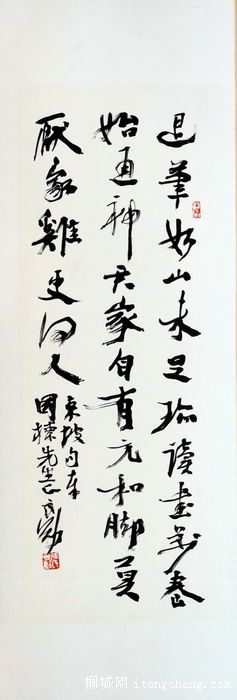 退筆如山未足珍讀書萬卷
始通神君家自有元和脚莫
厭家雞更問人
東坡句奉
國棟先生
桐城网 itongcheng.com